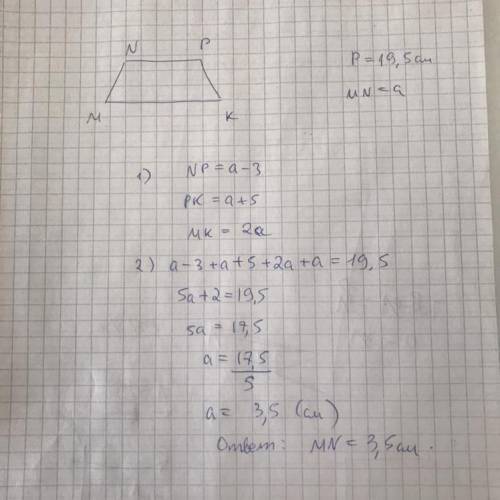 N P
M K
P = 19,5 см
MN = a
1) NP = a - 3
PK = a + 5
MK = 2a
2) a - 3 + a + 5 + 2a + a = 19,5
5a + 2 = 19,5
5a = 17,5
a = 17,5
5
a = 3,5 (см)
Ответ: MN = 3,5 см.